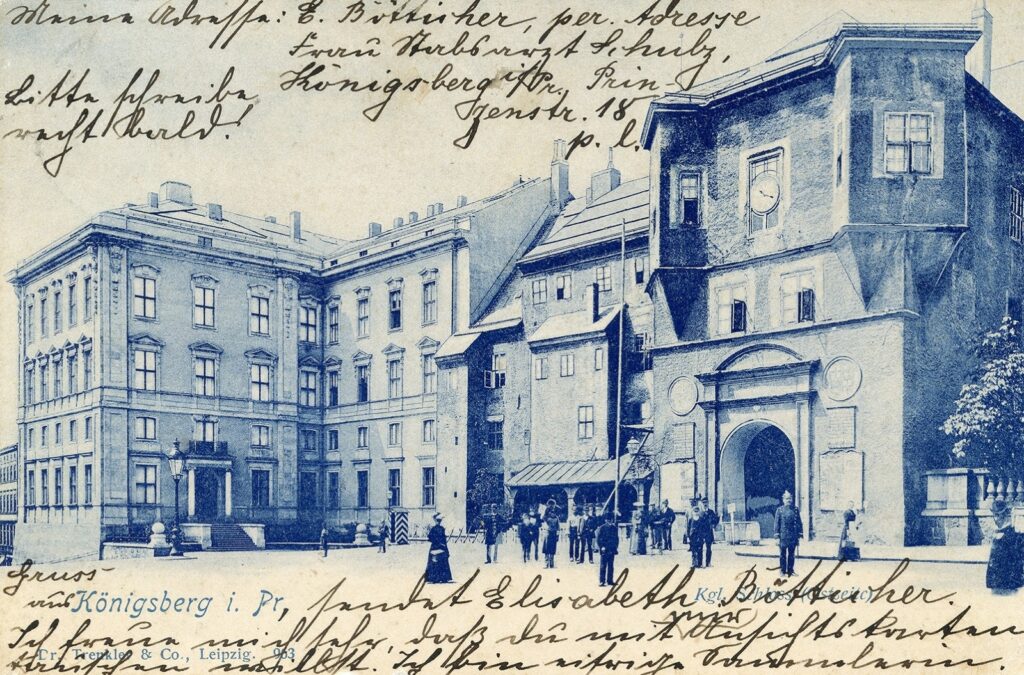 Meine Adresse: E. Bötticher, per. Adresse
Frau Stabsarzt Schulz,
Königsberg i/Pr, Prin-
zenstr. 18
p. l.
Bitte schreibe
recht bald!
Gruss
aus Königsberg i. Pr, sendet Elisabeth Bötticher.
Kgl. Schloss (Ostseite)
Ich freue mich sehr, daß du mit mir Ansichtskarten
tauschen willst. Ich bin eifrige Sammlerin.
Dr. Trenkler & Co., Leipzig. 963